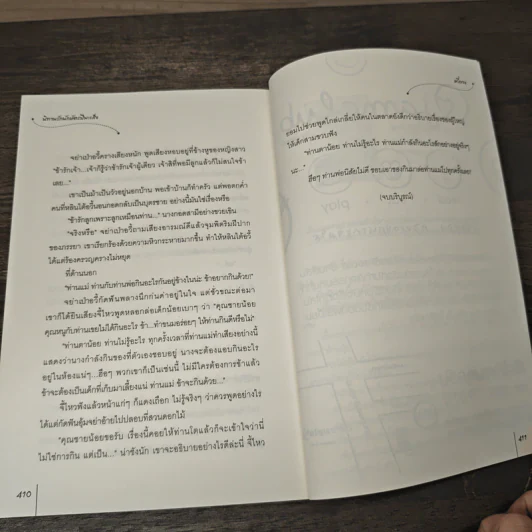 จยาเป่าอวี้ครางเสียงหนัก พูดเสียงหอบอยู่ที่ข้างหูของหญิงสาว
"ข้ารักเจ้า...เจ้าก็รู้ว่าข้ารักเจ้าผู้เดียว เจ้าสิที่พอมีลูกแล้วก็ไม่สนใจข้า
เลย..."
เขาเป็นม้าเป็นวัวอยู่นอกบ้าน พอเข้าบ้านก็ทำครัว แต่พอตกค่ำ
คนที่หลินไต้อวี้นอนกอดกลับเป็นบุตรชาย อย่างนี้มันใช่เรื่องหรือ
"ข้ารักลูกเพราะลูกเหมือนท่าน..." นางกอดสามีอย่างขวยเขิน
"จริงหรือ" จยาเป่าอวี้ถามเสียงอารมณ์ดีแล้วจุมพิตริมฝีปาก
ของภรรยา เขาเรียกร้องด้วยความหิวกระหายมากขึ้น ทำให้หลินไต้อวี้
ได้แต่ร้องครวญครางไม่หยุด
ที่ด้านนอก
"ท่านแม่ ท่านกับท่านพ่อกินอะไรกันอยู่ข้างในน่ะ ข้าอยากกินด้วย"
จยาเป่าอวี้กัดฟันพลางนึกก่นด่าอยู่ในใจ แต่ชั่วขณะต่อมา
เขาก็ได้ยินเสียงจี้ไหวพูดหลอกล่อเด็กน้อยเบาๆ ว่า "คุณชายน้อย
"ท่านตาน้อย ท่านไม่รู้อะไร ทุกครั้งเวลาที่ท่านแม่ทำเสียงอย่างนี้
แสดงว่านางกำลังกินของที่ตัวเองชอบอยู่ นางจะต้องแอบกินอะไร
อยู่ในห้องแน่ๆ...ฮือๆ พวกเขาก็เป็นเช่นนี้ ไม่มีใครต้องการข้าแล้ว
ข้าจะต้องเป็นเด็กที่เก็บมาเลี้ยงแน่ ท่านแม่ ข้าจะกินด้วย..."
จี้ไหวฟังแล้วหน้าแก่ๆ ก็แดงเถือก ไม่รู้จริงๆ ว่าควรพูดอย่างไร
ได้แต่กัดฟันอุ้มจยาย้ายไปปลอบที่สวนดอกไม้
"คุณชายน้อยขอรับ เรื่องนี้คอยให้ท่านโตแล้วก็จะเข้าใจว่านี่
ไม่ใช่การกิน แต่เป็น..." น่าชังนัก เขาจะอธิบายอย่างไรดีล่ะนี่ จี้ไหว
410
ย่อมไปช่วยพูดไกล่เกลี่ยให้คนในตลาดยังดีกว่าอธิบายเรื่องของผู้ใหญ่
ให้เด็กสามขวบฟัง
"ท่านตาน้อย ท่านไม่รู้อะไร ท่านแม่กำลังกินอะไรอีกอย่างจริงๆ
นะ..."
ฮือๆ ท่านพ่อนิสัยไม่ดี ชอบเอาของกินมาล่อท่านแม่ไปทุกครั้งเลย!
(จบบริบูรณ์)
411